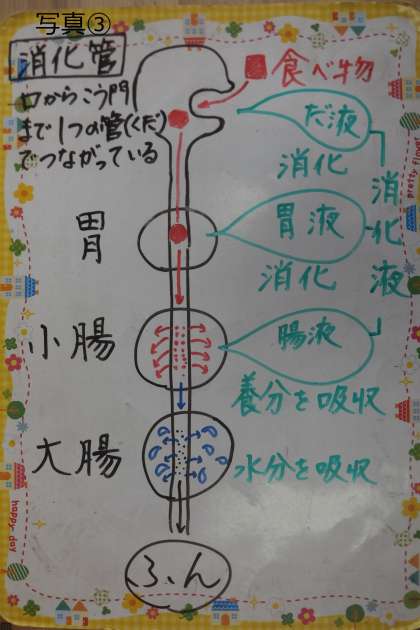 写真③
消化管
口からこう門
まで1つの管(くだ)
でつながっている
食べ物
だ液
消化
胃
胃液
消化
消化液
小腸
腸液
養分を吸収
大腸
水分を吸収
ふん
pretty flower
happy day